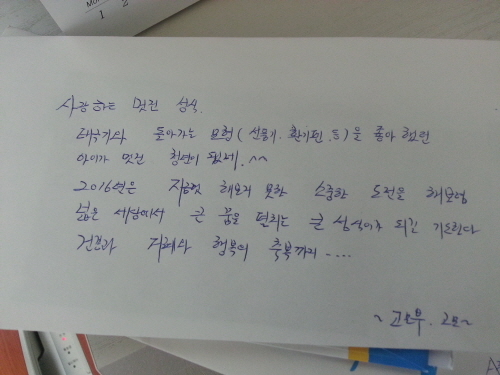 Mon
1 2
사랑하는 멋진 상식.
태극기와 돌아가는 모형(선풍기. 환기팬.등)을 좋아 했던
아이가 멋진 청년이 됐네.^^
2016년은 지금껏 해보지 못한 소중한 도전을 해보렴
넓은 세상에서 큰 꿈을 펼치는 큰 상식이가 되길 기도한다
건강과 지혜와 행복의 축복까지....
~고모부.고모~